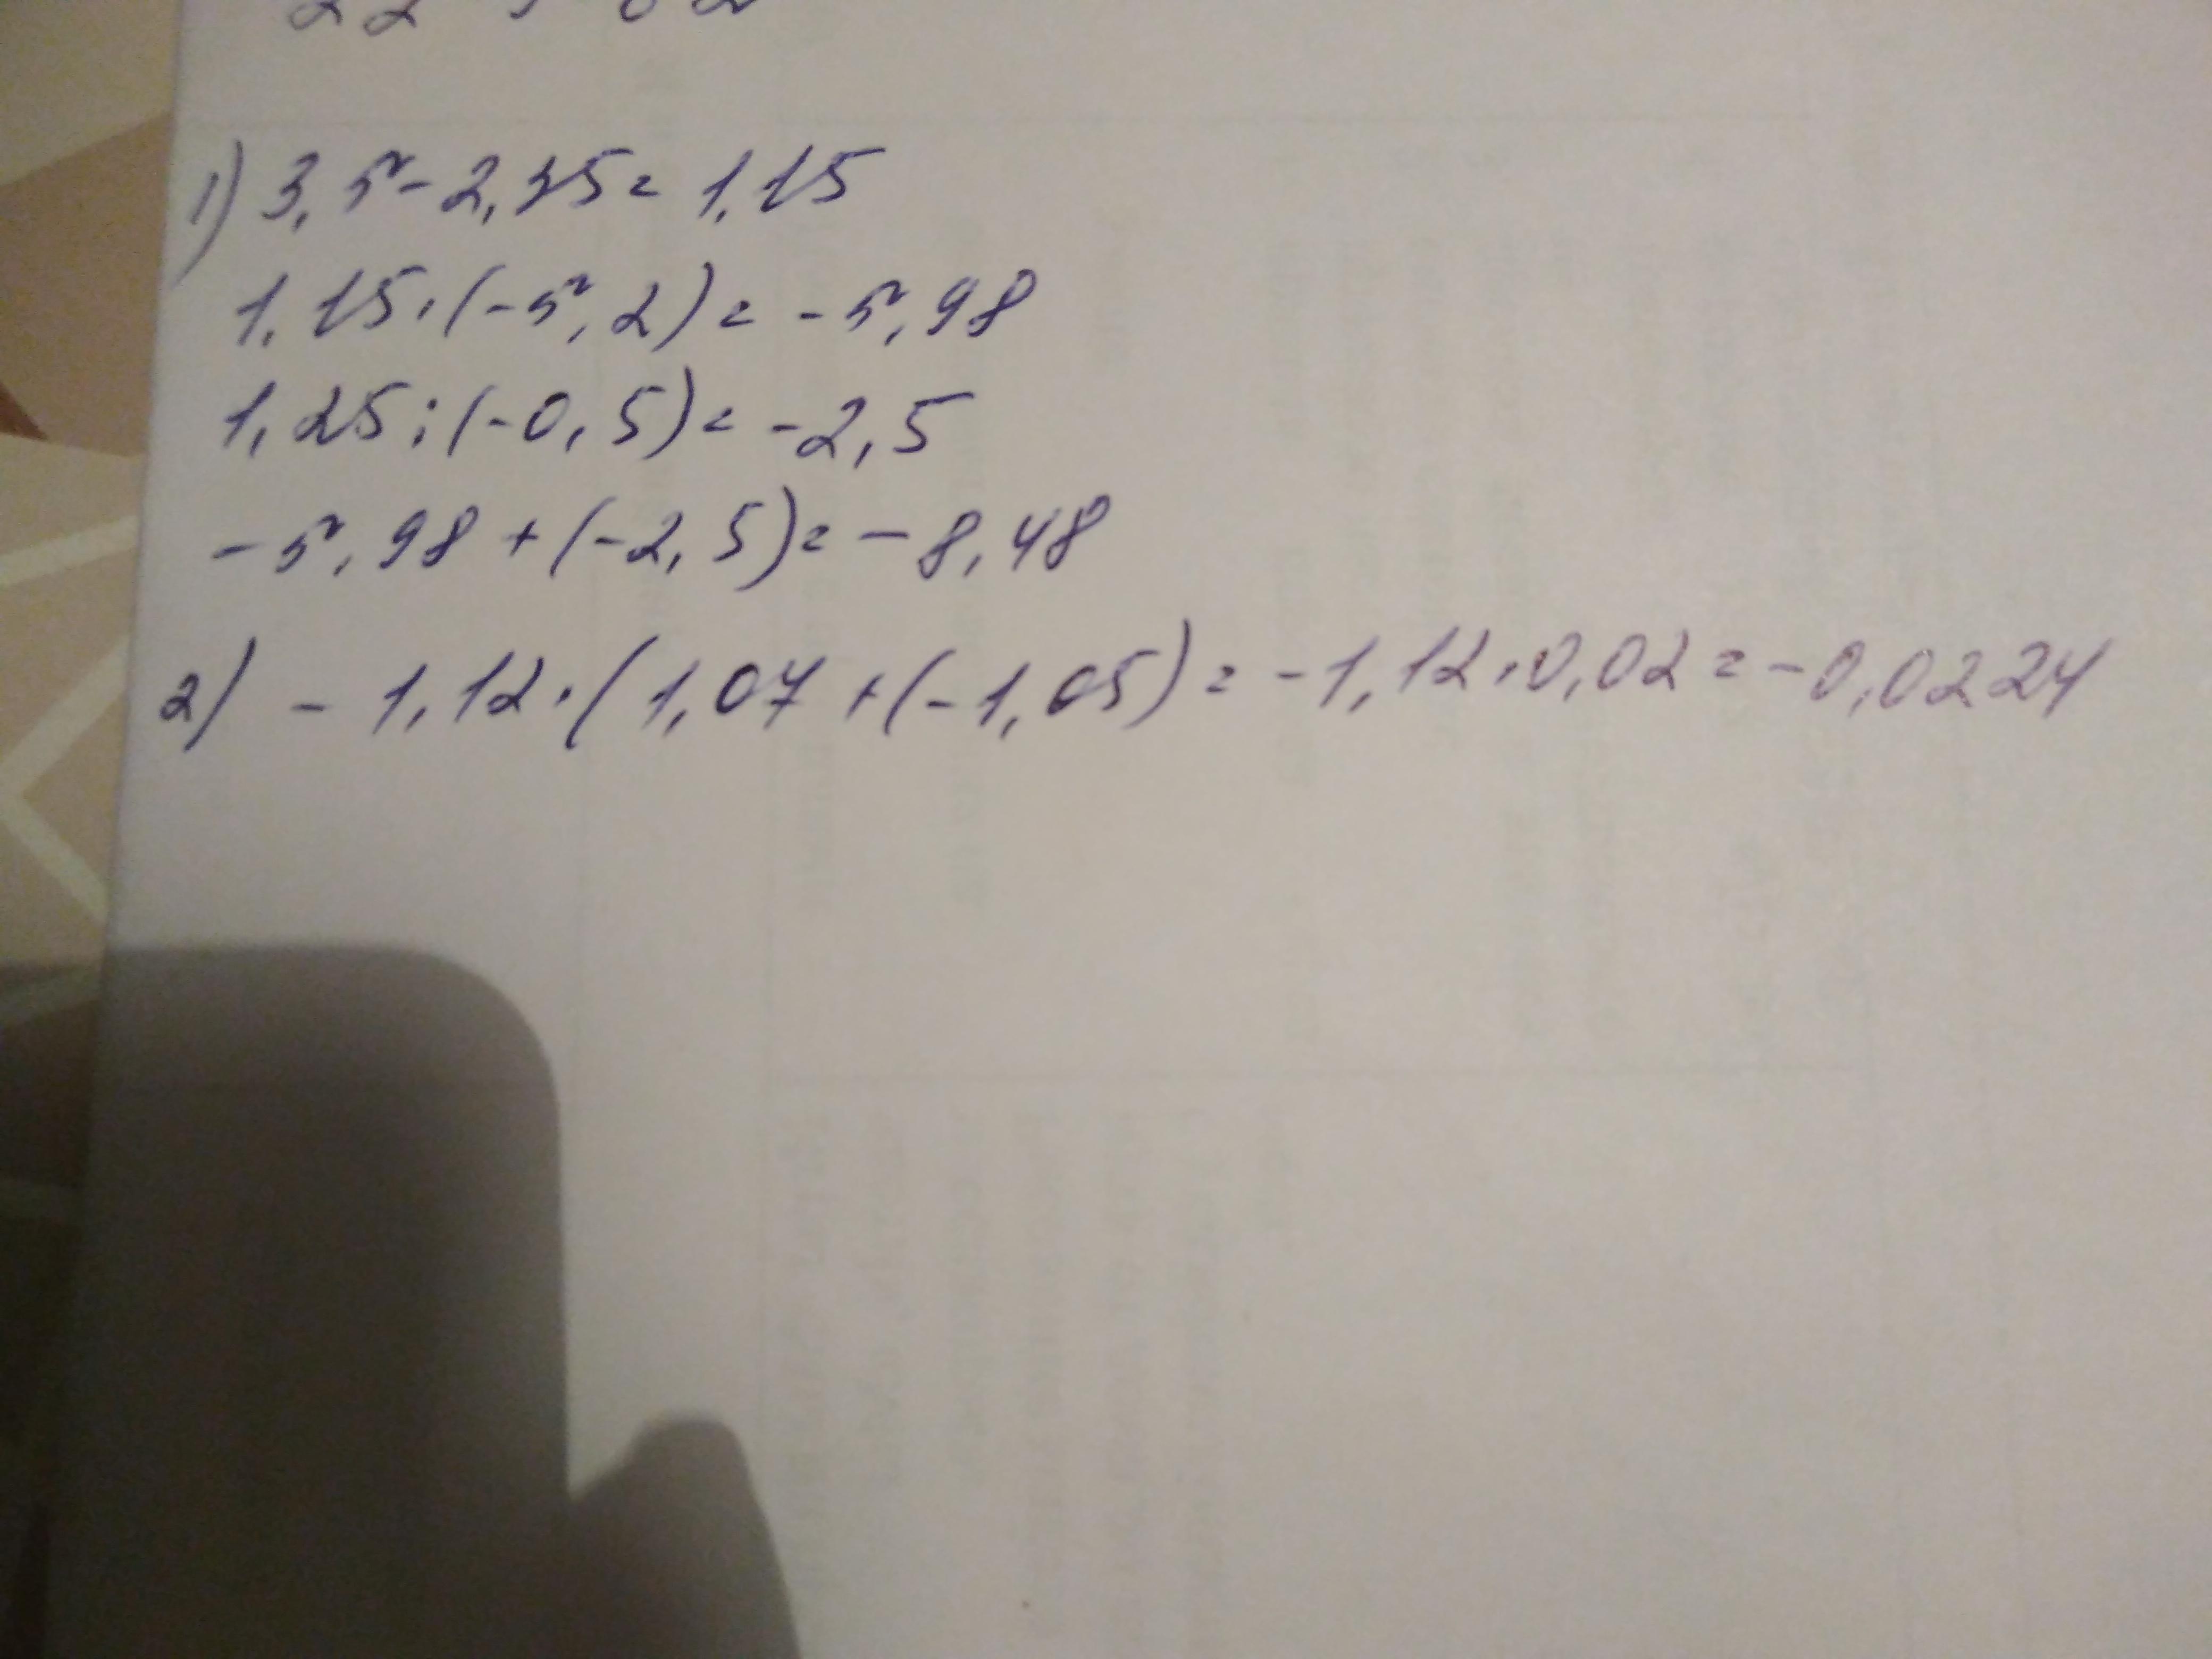 1) 3,5-2,35=1,15
1,15·(-5,2)=-5,98
1,25:(-0,5)=-2,5
-5,98+(-2,5)=-8,48
2) -1,12·(1,07+(-1,05)=-1,12·0,02=-0,0224